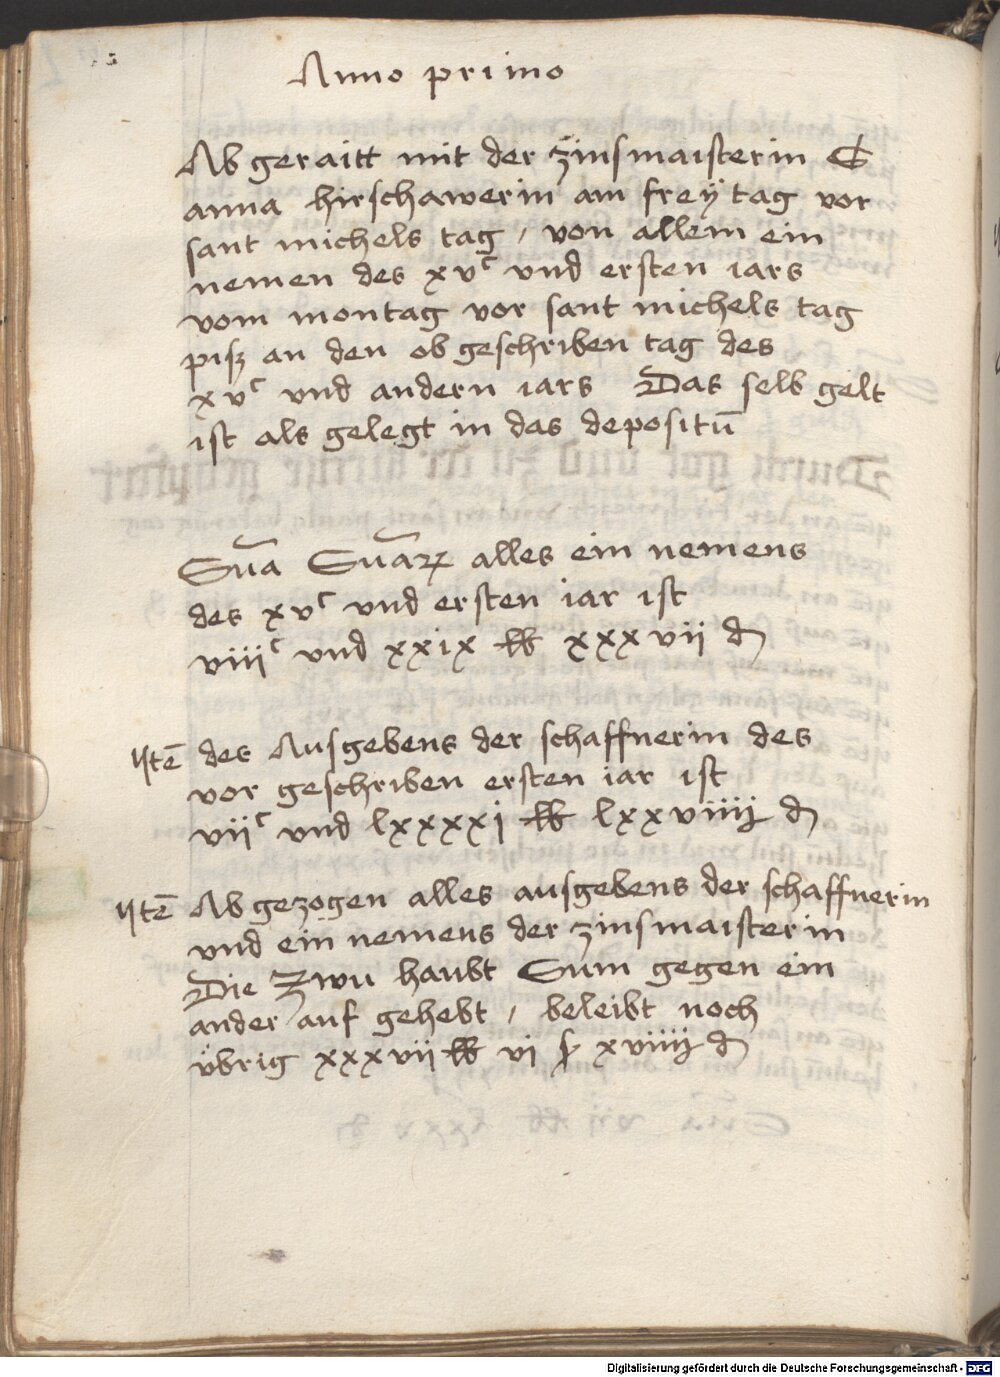 Anno primo
Ab geraitt mit der zinsmaisterin E
anna hirschawerin am freÿtag vor
sant michels tag / von allem ein
nemen des xvᶜ vnd ersten iars
vom montag vor sant michels tag
pisz an den ob geschriben tag des
xvᶜ vnd andern iars Das selb gelt
ist als gelegt in das depositū
Sūa Sūaꝝ alles ein nemens
des xvᶜ vnd ersten iar ist
viiiᶜ vnd xxix ℔ xxxvii ₰
Itē des Ausgebens der schaffnerin des
vor geschriben ersten iar ist
viiᶜ vnd lxxxxi ℔ lxxviiij ₰
Itē Ab gezogen alles ausgebens der schaffnerin
vnd ein nemens der zinsmaisterin
Die Zwu haubt Sum gegen ein
ander auf gehebt / beleibt noch
übrig xxxvii ℔ vi ß xviiij ₰
Digitalisierung gefördert durch die Deutsche Forschungsgemeinschaft - DFG